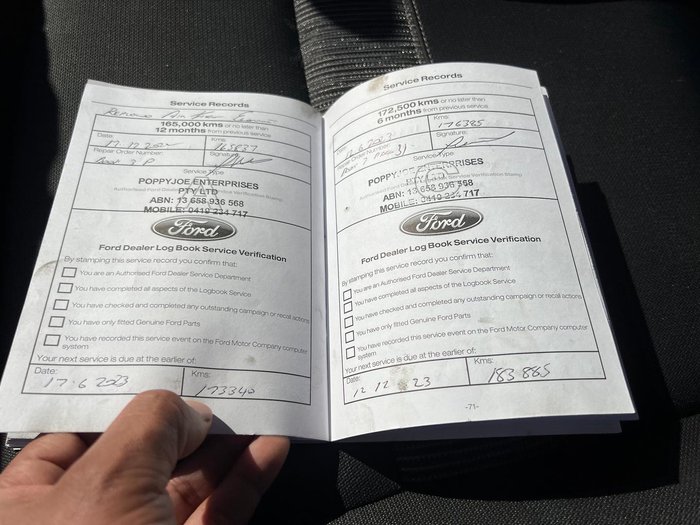 Service Records
165,000 kms or no later than
12 months from previous service
Date:
Kms:
165837
Repair Order Number:
Signature:
Service Type
POPPYJOE ENTERPRISES
PTY LTD
Authorised Ford Dealer Service Verification Stamp
ABN: 13 658 936 568
MOBILE: 0419 234 717
Ford
Ford Dealer Log Book Service Verification
By stamping this service record you confirm that:
You are an Authorised Ford Dealer Service Department
You have completed all aspects of the Logbook Service
You have checked and completed any outstanding campaign or recall actions
You have only fitted Genuine Ford Parts
You have recorded this service event on the Ford Motor Company computer
system
Your next service is due at the earlier of:
Date:
Kms:
17.6 2023
173340
Service Records
172,500 kms or no later than
6 months from previous service
Date:
Kms:
176385
Repair Order Number:
Signature:
Service Type
POPPYJOE ENTERPRISES
PTY LTD
Authorised Ford Dealer Service Verification Stamp
ABN: 13 658 936 568
MOBILE: 0419 234 717
Ford
Ford Dealer Log Book Service Verification
By stamping this service record you confirm that:
You are an Authorised Ford Dealer Service Department
You have completed all aspects of the Logbook Service
You have checked and completed any outstanding campaign or recall actions
You have only fitted Genuine Ford Parts
You have recorded this service event on the Ford Motor Company computer
system
Your next service is due at the earlier of:
Date:
Kms:
12 12 23
183885
-71-